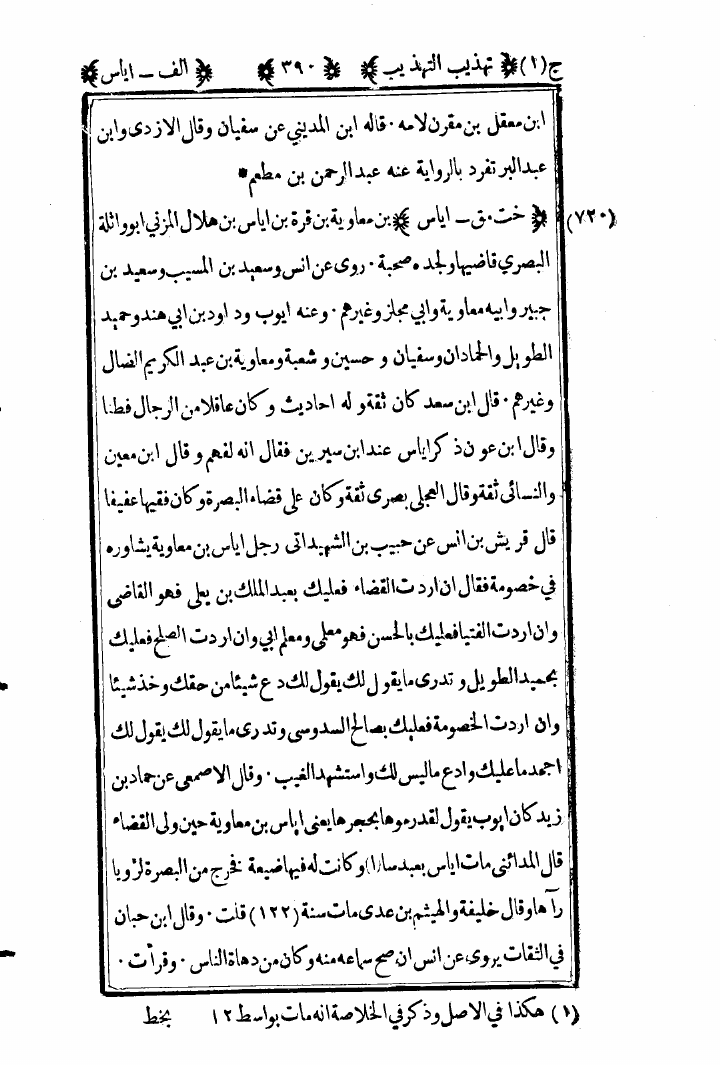 ج(١) ﴿ تهذيب التهذيب ﴾ ﴿ ٣٩٠ ﴾ ﴿ الف ــ اياس ﴾
ابن معقل بن مقرن لامه ٠ قاله ابن المديني عن سفيان وقال الازدى وابن
عبدالبر تفرد بالرواية عنه عبد الرحمن بن مطعم *
(٧٢٠) ﴿ خت ٠ مق ــ اياس ﴾ بن معاوية بن قرة بن اياس بن هلال المزني ابوواثلة
البصري قاضيها ولجده صحبة ٠ روى عن انس وسعيد بن المسيب وسعيد بن
جبير وابيه معاوية وابي مجلز وغيرهم ٠ وعنه ايوب وداود بن ابي هند وحميد
الطويل والحمادان وسفيان و حسين و شعبة ومعاوية بن عبد الكريم الضال
وغيرهم ٠ قال ابن سعد كان ثقة و له احاديث وكان عاقلا من الرجال فطنا
وقال ابن عون ذكر اياس عند ابن سيرين فقال انه لفهم و قال ابن معين
والنسائى ثقة وقال العجلى بصرى ثقة وكان على قضاء البصرة وكان فقيها عفيفا
قال قريش بن انس عن حبيب بن الشهيد اتى رجل اياس بن معاوية يشاوره
في خصومة فقال ان اردت القضاء فعليك بعبد الملك بن يعلى فهو القاضى
وان اردت الفتيا فعليك بالحسن فهو معلمى ومعلم ابي وان اردت الصلح فعليك
بحميد الطويل و تدرى ما يقول لك يقول لك دع شيئا من حقك وخذ شيئا
وان اردت الخصومة فعليك بصالح السدوسى وتدرى ما يقول لك يقول لك
اجحد ما عليك وادع ما ليس لك واستشهد الغيب ٠ وقال الاصمعى عن حماد بن
زيد كان ايوب يقول لقد رموها بحجرها يعنى اياس بن معاوية حين ولى القضاء
قال المدائنى مات اياس بعبدسا(١) وكانت له فيها ضيعة فخرج من البصرة لرؤيا
رآها وقال خليفة والهيثم بن عدى مات سنة (١٢٢) قلت ٠ وقال ابن حبان
في الثقات يروى عن انس ان صح سماعه منه وكان من دهاة الناس ٠ وقرأت ٠
(١) هكذا في الاصل وذكر في الخلاصة انه مات بواسط ١٢ بخط